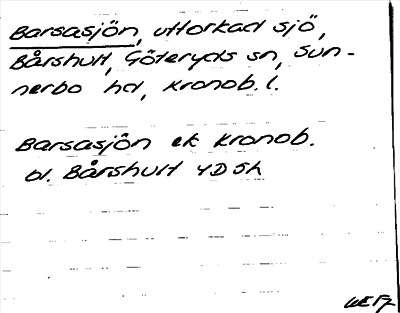 Barsasjön, uttorkad sjö,
Bårshult, Göteryds sn, Sun-
nerbo hd, Kronob. l.
Barsasjön ek Kronob.
bl. Bårshult 4D5h